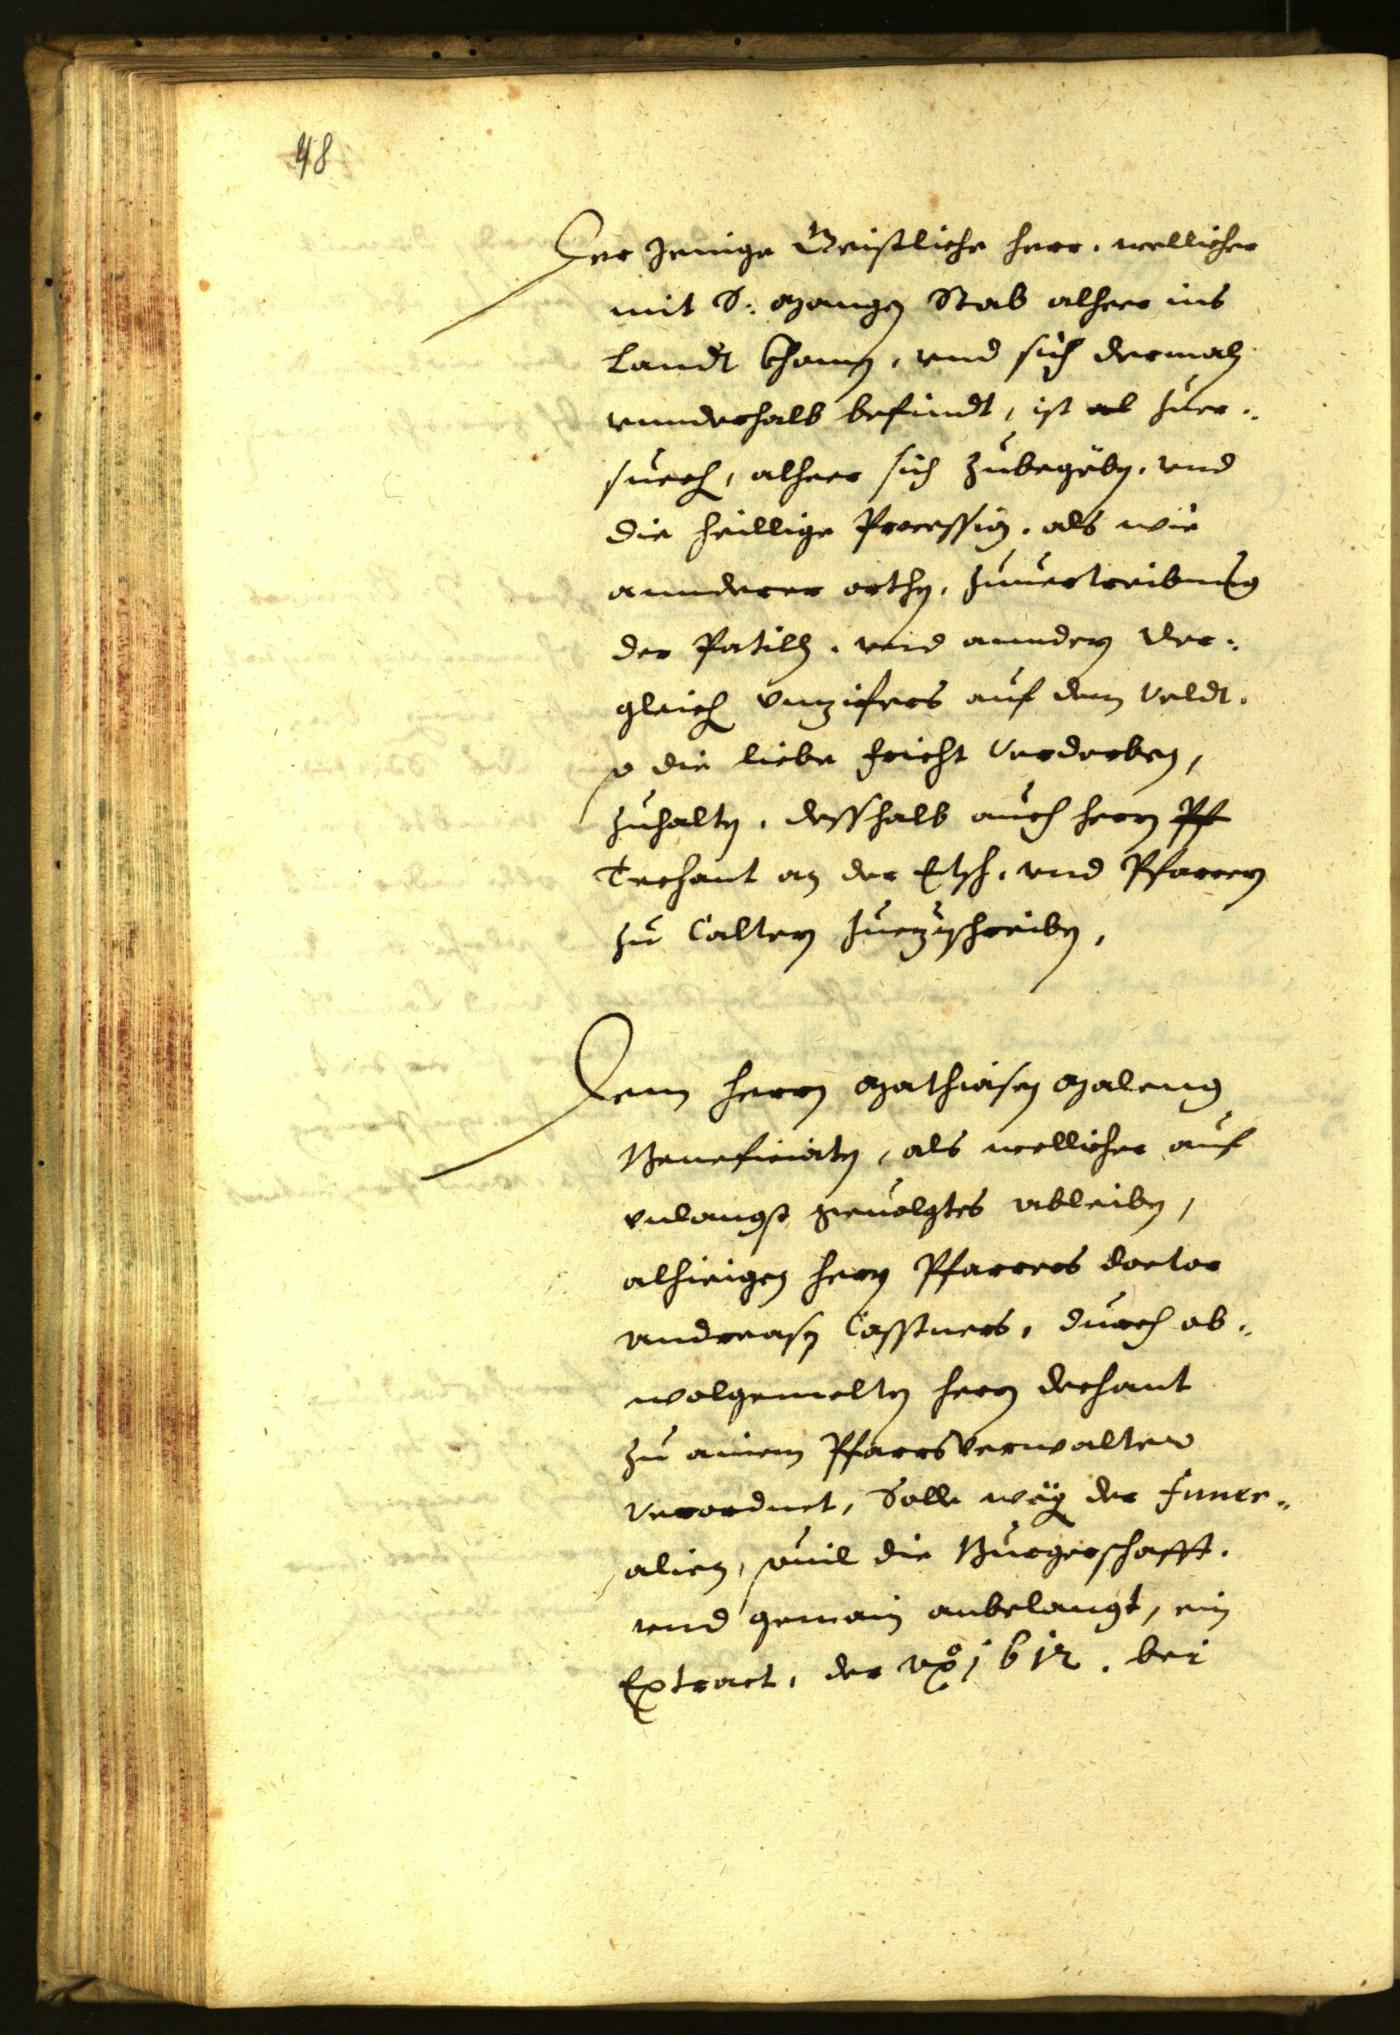 48
Der Jenige Geistliche herr, wellicher
mit S: Mangen Stab alheer ins
Landt khomen, vnd sich dermaln
vnnderhalb befindt, ist zuer-
suechen, alheer sich zubegëben, vnd
die heillige Procession, als wie
annderer orthen, zuuertreibung
der Patilln, vnd anndern der-
gleichen Vnzifers auf dem Veldt,
so die liebe fricht Verderben,
zuhalten, desshalb auch herrn Pf
Techant an der Etsch, vnd Pfarrern
zu Caltern zuezuschreiben,
Dem herrn Mathiasen Maleng
Beneficiaten, als wellicher auf
vnlangst geuolgtes ableiben,
alhieigen herrn Pfarrers doctor
Andreasen Casstners, durch ob-
wolgemelten herrn dechant
zu ainem Pfarrsverwalter
Verordnet, Solle wëgen der funer-
alien, souil die Burgerschafft,
vnd gemain anbelangt, ein
Extract, der 1612. bei